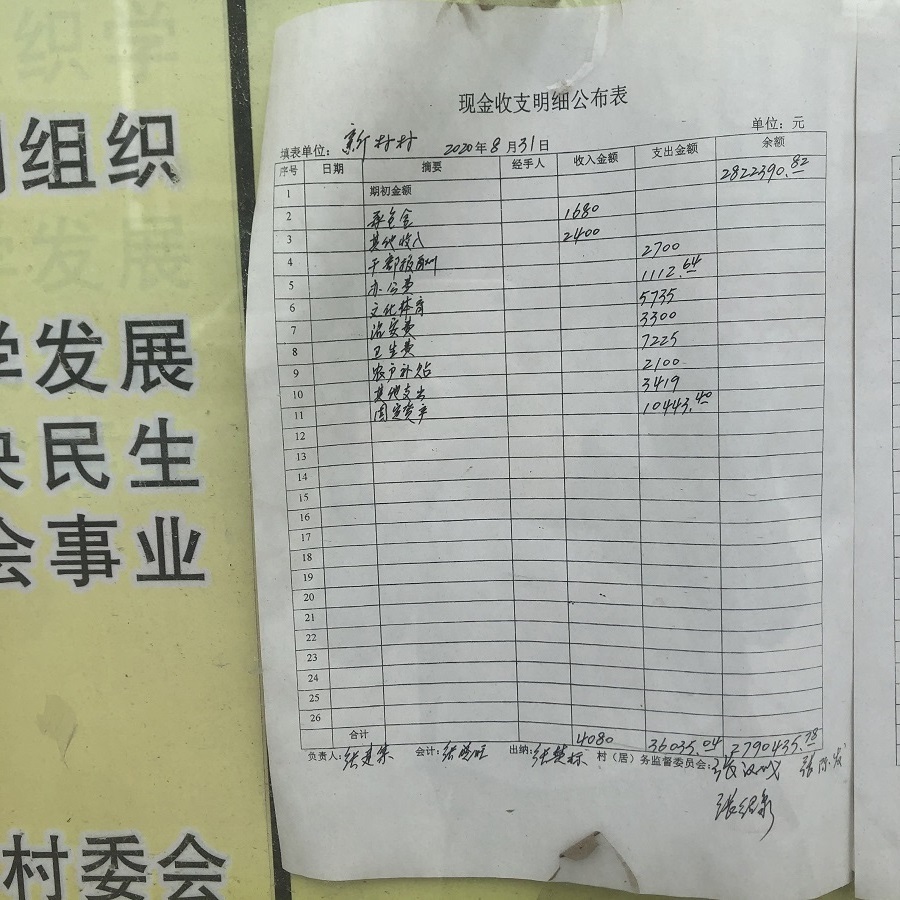 组织
学发展
民生
会事业
村委会
现金收支明细公布表
单位：元
填表单位：新村村 2020年8月31日
序号 日期 摘要 经手人 收入金额 支出金额 余额
1 期初金额 2822390.82
2 承包金 1680
3 其他收入 2400
4 干部报酬 2700
5 办公费 1112.64
6 文化体育 5735
7 治安费 3300
8 卫生费 7225
9 农户补贴 2100
10 其他支出 3419
11 固定资产 10443.40
12
13
14
15
16
17
18
19
20
21
22
23
24
25
26
合计 4080 36035.04 2790435.78
负责人：张建 会计：张 出纳：张 村（居）务监督委员会：张汉成 张
张绍